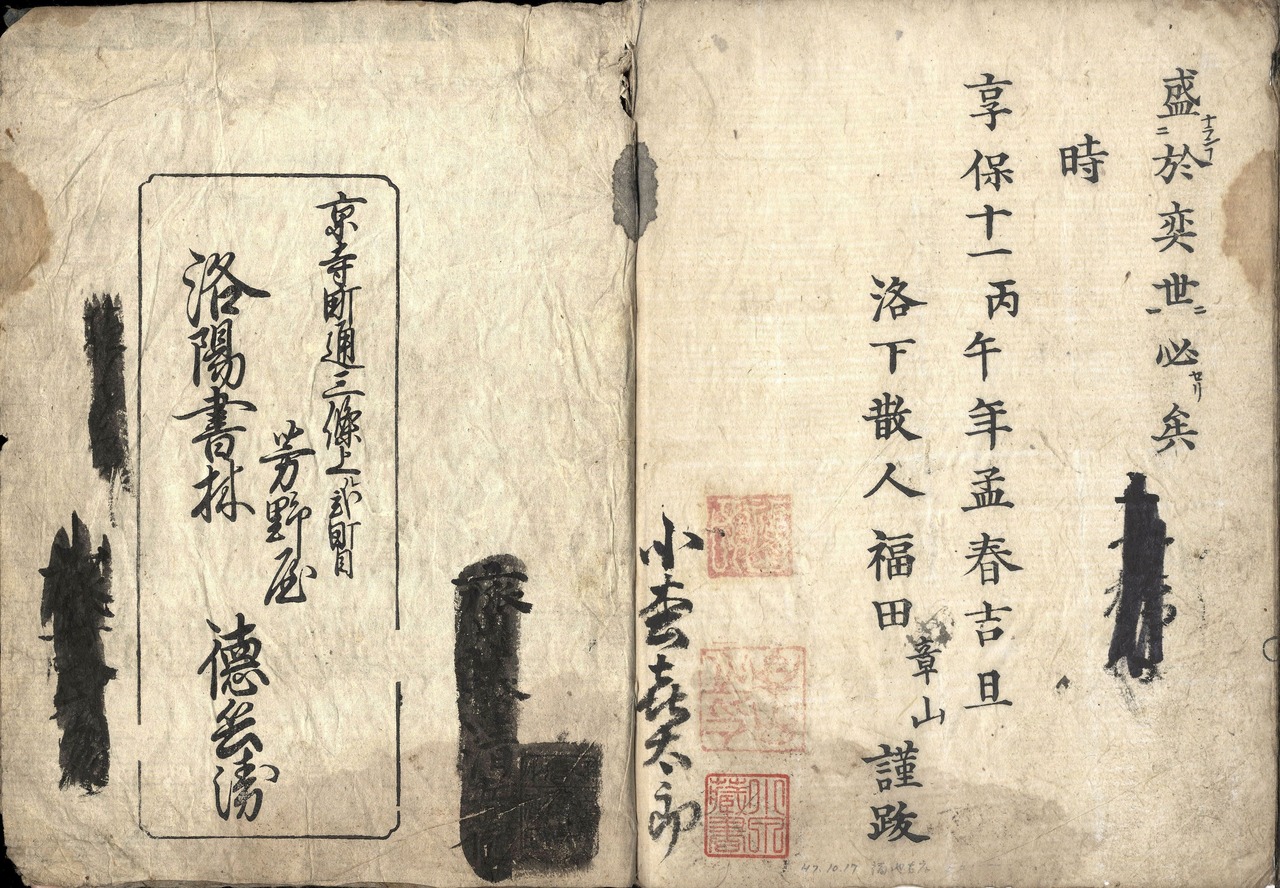 盛於奕世必矣
時
享保十一丙午年孟春吉旦
洛下散人福田章山謹跋
喜太郎
京寺町通三條上ル弐町目
芳野屋
洛陽書林 徳兵衛
47.10.17